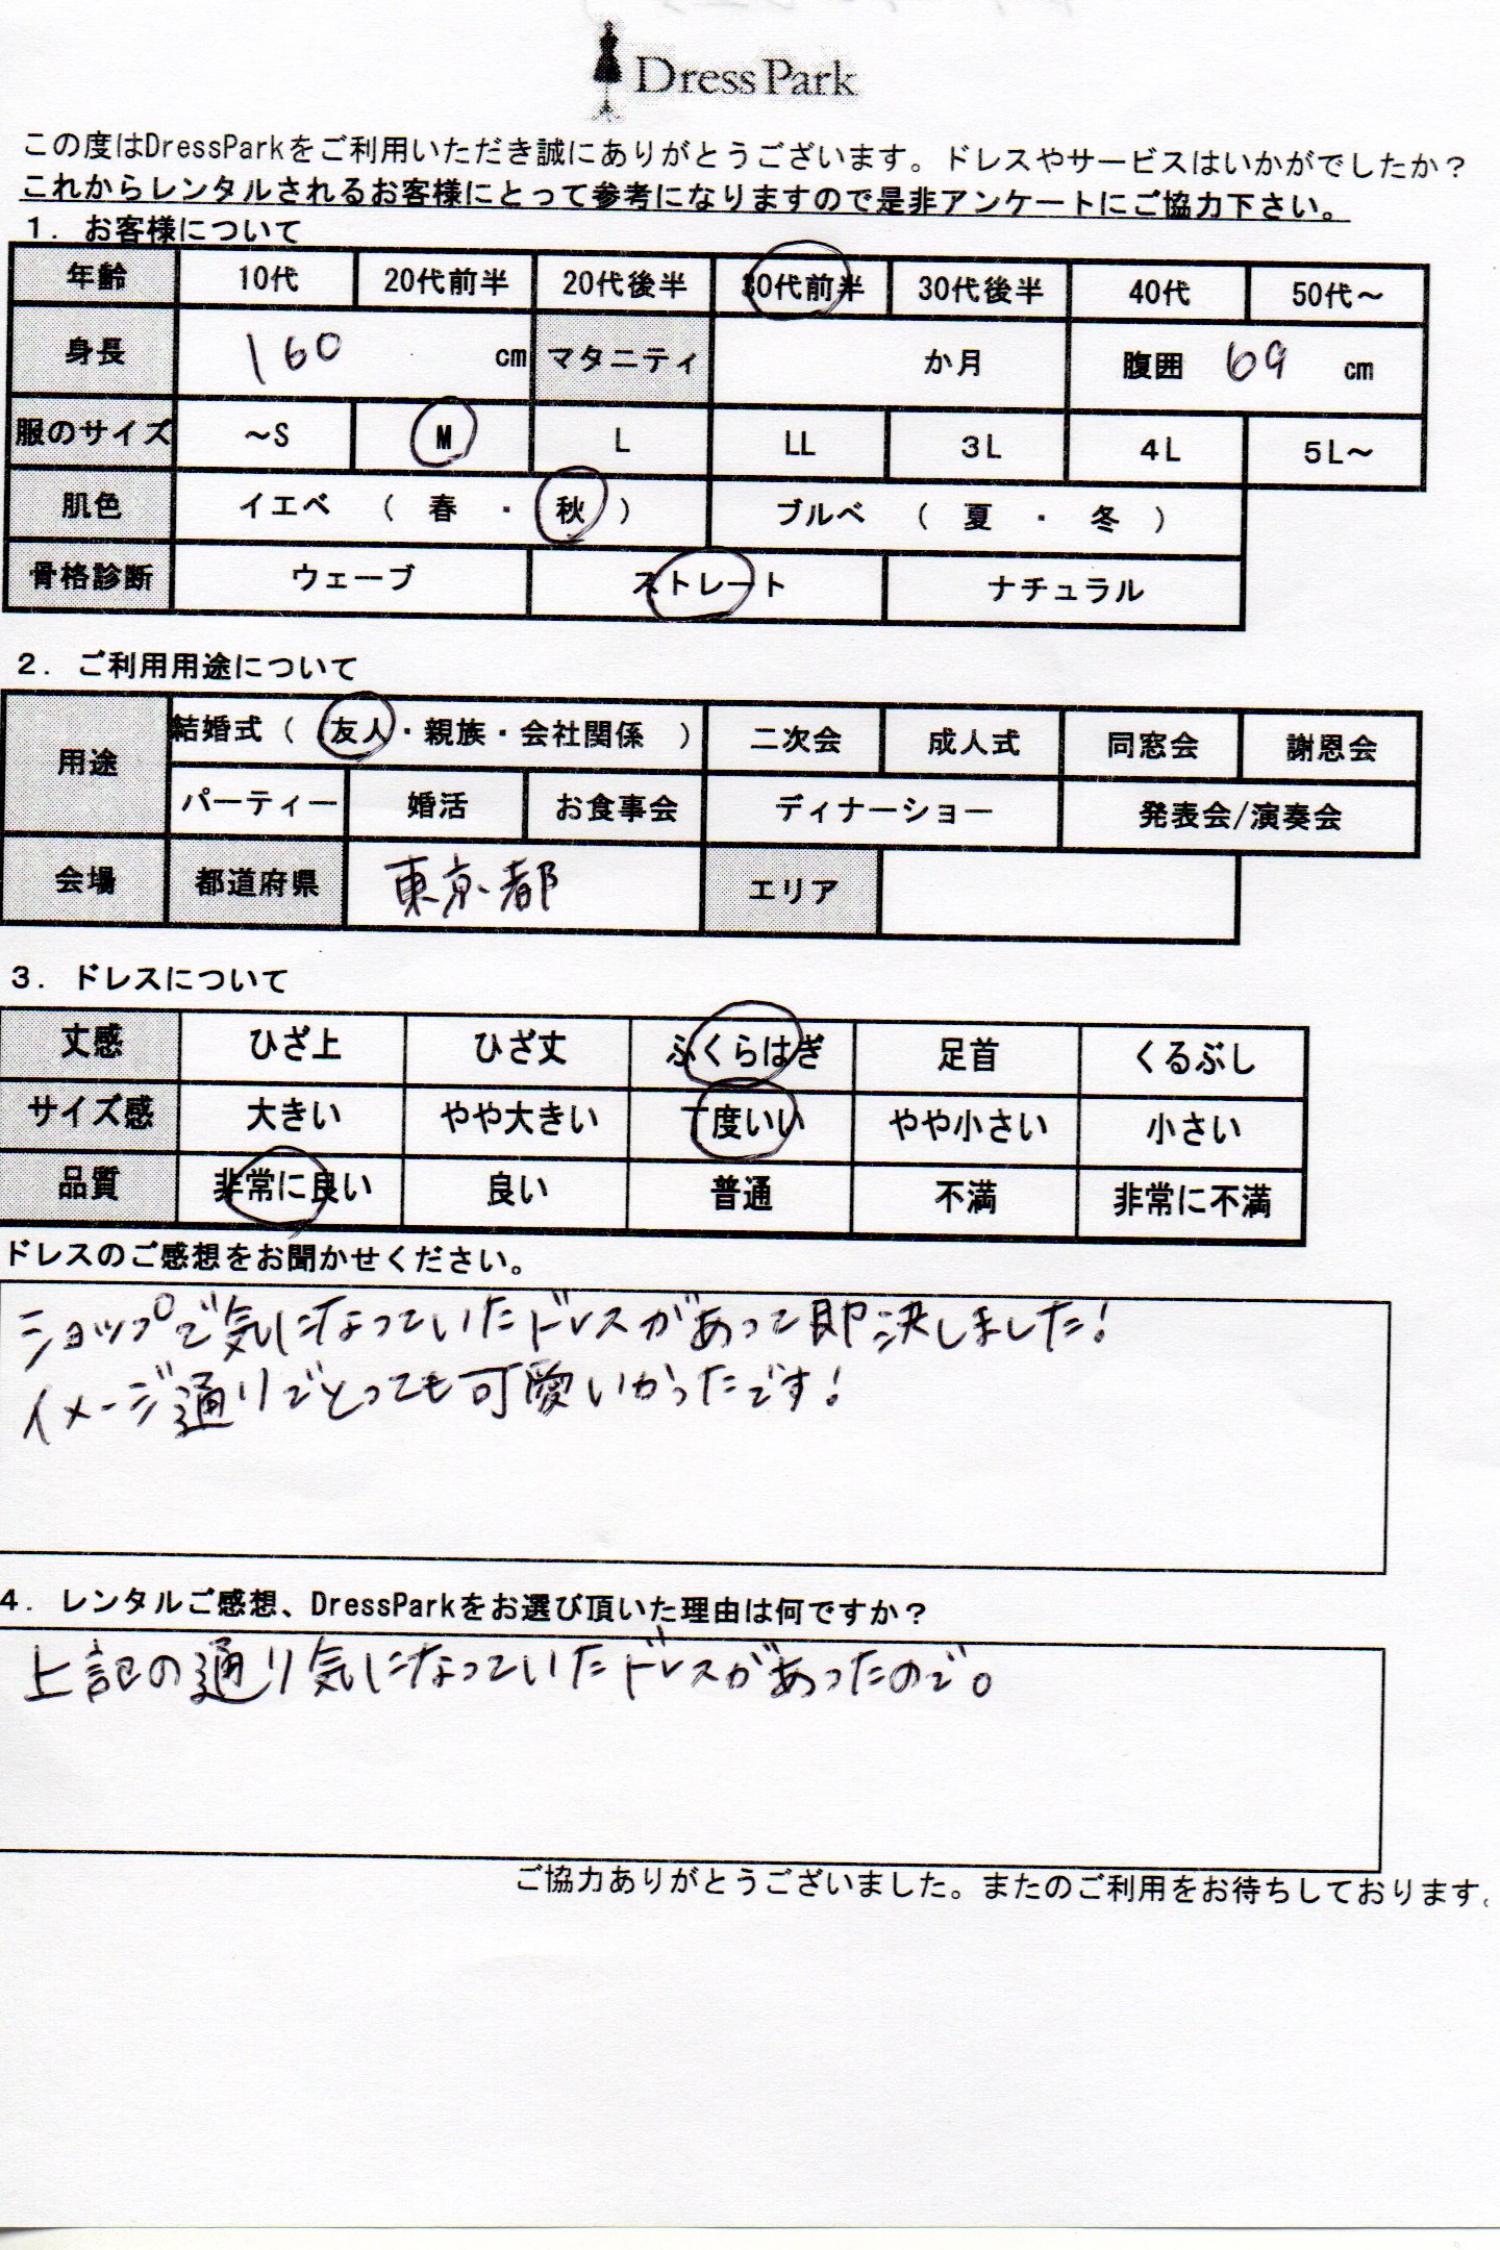 Dress Park
この度はDressParkをご利用いただき誠にありがとうございます。ドレスやサービスはいかがでしたか？
これからレンタルされるお客様にとって参考になりますので是非アンケートにご協力下さい。
１．お客様について
年齢 10代 20代前半 20代後半 30代前半 30代後半 40代 50代～
身長 160 cm マタニティ か月 腹囲 69 cm
服のサイズ ～S M L LL 3L 4L 5L～
肌色 イエベ （ 春 ・ 秋 ） ブルベ （ 夏 ・ 冬 ）
骨格診断 ウェーブ ストレート ナチュラル
２．ご利用用途について
用途 結婚式（ 友人・親族・会社関係 ） 二次会 成人式 同窓会 謝恩会
パーティー 婚活 お食事会 ディナーショー 発表会/演奏会
会場 都道府県 東京都 エリア
３．ドレスについて
丈感 ひざ上 ひざ丈 ふくらはぎ 足首 くるぶし
サイズ感 大きい やや大きい 丁度いい やや小さい 小さい
品質 非常に良い 良い 普通 不満 非常に不満
ドレスのご感想をお聞かせください。
ショップで気になっていたドレスがあって即決しました!
イメージ通りでとっても可愛いかったです!
４．レンタルご感想、DressParkをお選び頂いた理由は何ですか？
上記の通り気になっていたドレスがあったので。
ご協力ありがとうございました。またのご利用をお待ちしております。